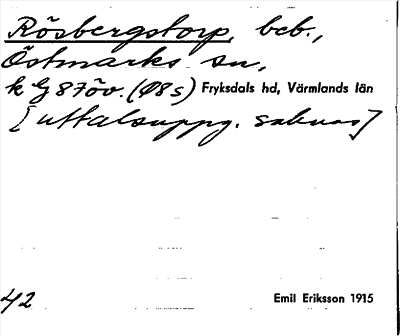 Rösbergstorp, beb.,
Östmarks sn,
k G 87öv. (Ø8s) Fryksdals hd, Värmlands län
[uttalsuppg. saknas]
42 Emil Eriksson 1915